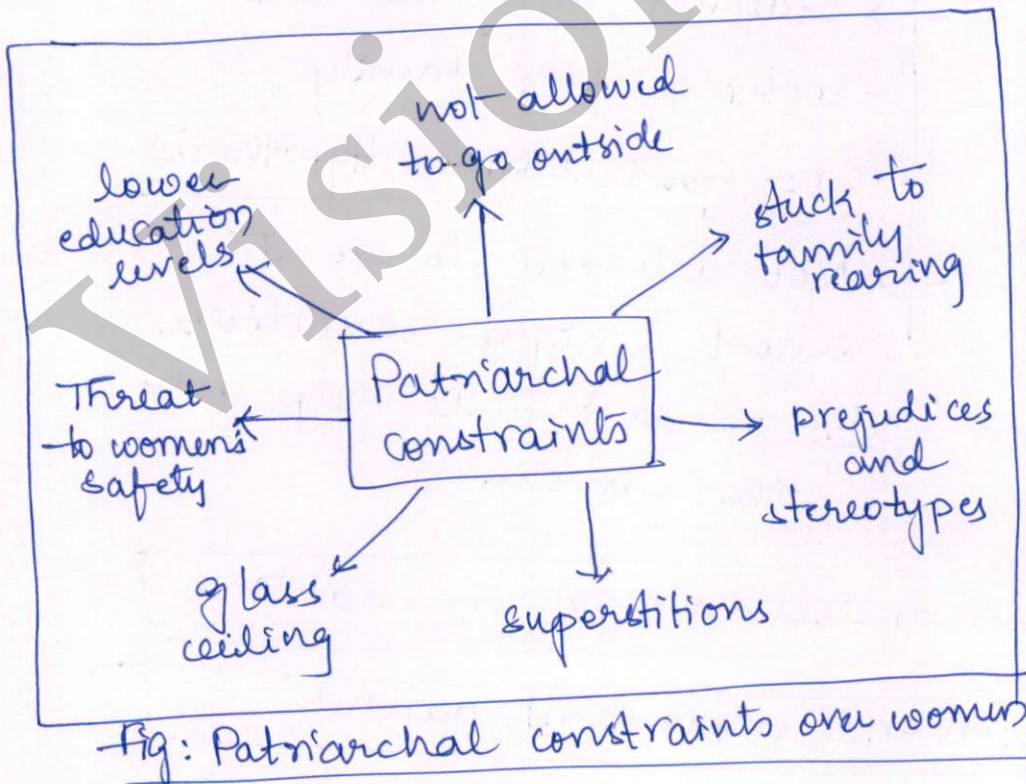 not allowed
to go outside
lower
education
levels
stuck to
family
rearing
Patriarchal
constraints
Threat
to women's
safety
prejudices
and
stereotypes
glass
ceiling
superstitions
Fig: Patriarchal constraints over women
Vision